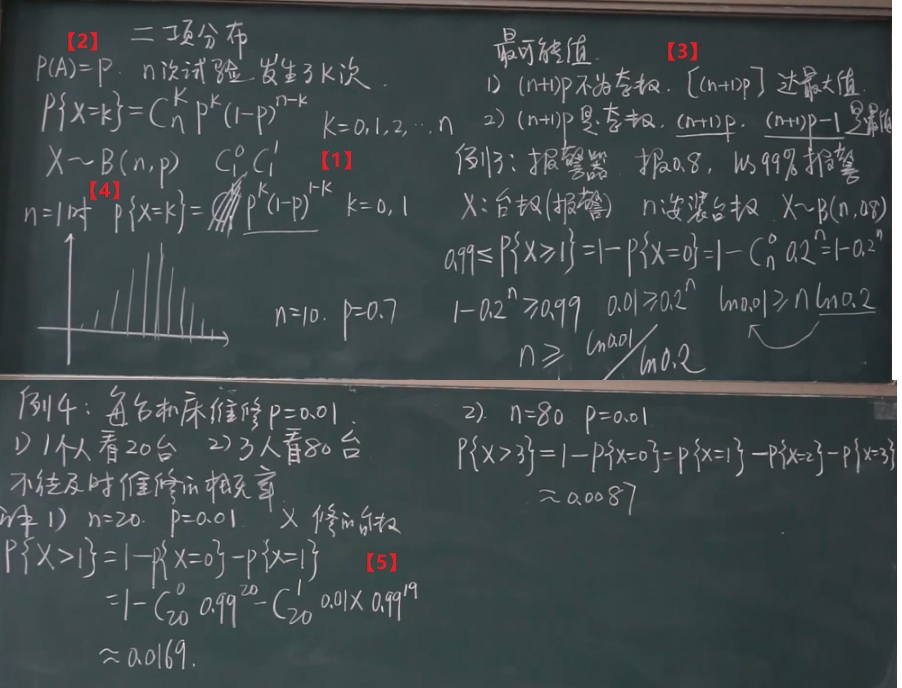 【2】 二项分布
P(A)=P. n次试验 发生了k次.
P{X=k}=C_n^k p^k (1-p)^{n-k} K=0,1,2,…n
X～B(n,p) C_1^0 C_1^1 【1】
【4】
n=1时 P{X=k}= p^k (1-p)^{1-k} k=0,1
n=10. p=0.7
最可能值. 【3】
1) (n+1)p不为整数. [(n+1)p] 达最大值.
2) (n+1)p是整数. (n+1)p. (n+1)p-1是最值
例3: 报警器. 报0.8, 以99%报警
X:台数(报警) n:安装台数 X～B(n,0.8)
0.99≤P{X≥1}=1-P{X=0}=1-C_n^0 0.2^n=1-0.2^n
1-0.2^n≥0.99 0.01≥0.2^n ln0.01≥n ln0.2
n≥ ln0.01/ln0.2
例4: 每台机床维修p=0.01.
1) 1个人看20台 2) 3人看80台
不能及时维修的概率.
解 1) n=20. p=0.01. X 修的台数
P{X>1}=1-P{X=0}-P{X=1}
【5】
=1-C_20^0 0.99^20-C_20^1 0.01×0.99^19
≈0.0169.
2). n=80 p=0.01
P{X>3}=1-P{X=0}=P{X=1}-P{X=2}-P{X=3}
≈0.0087